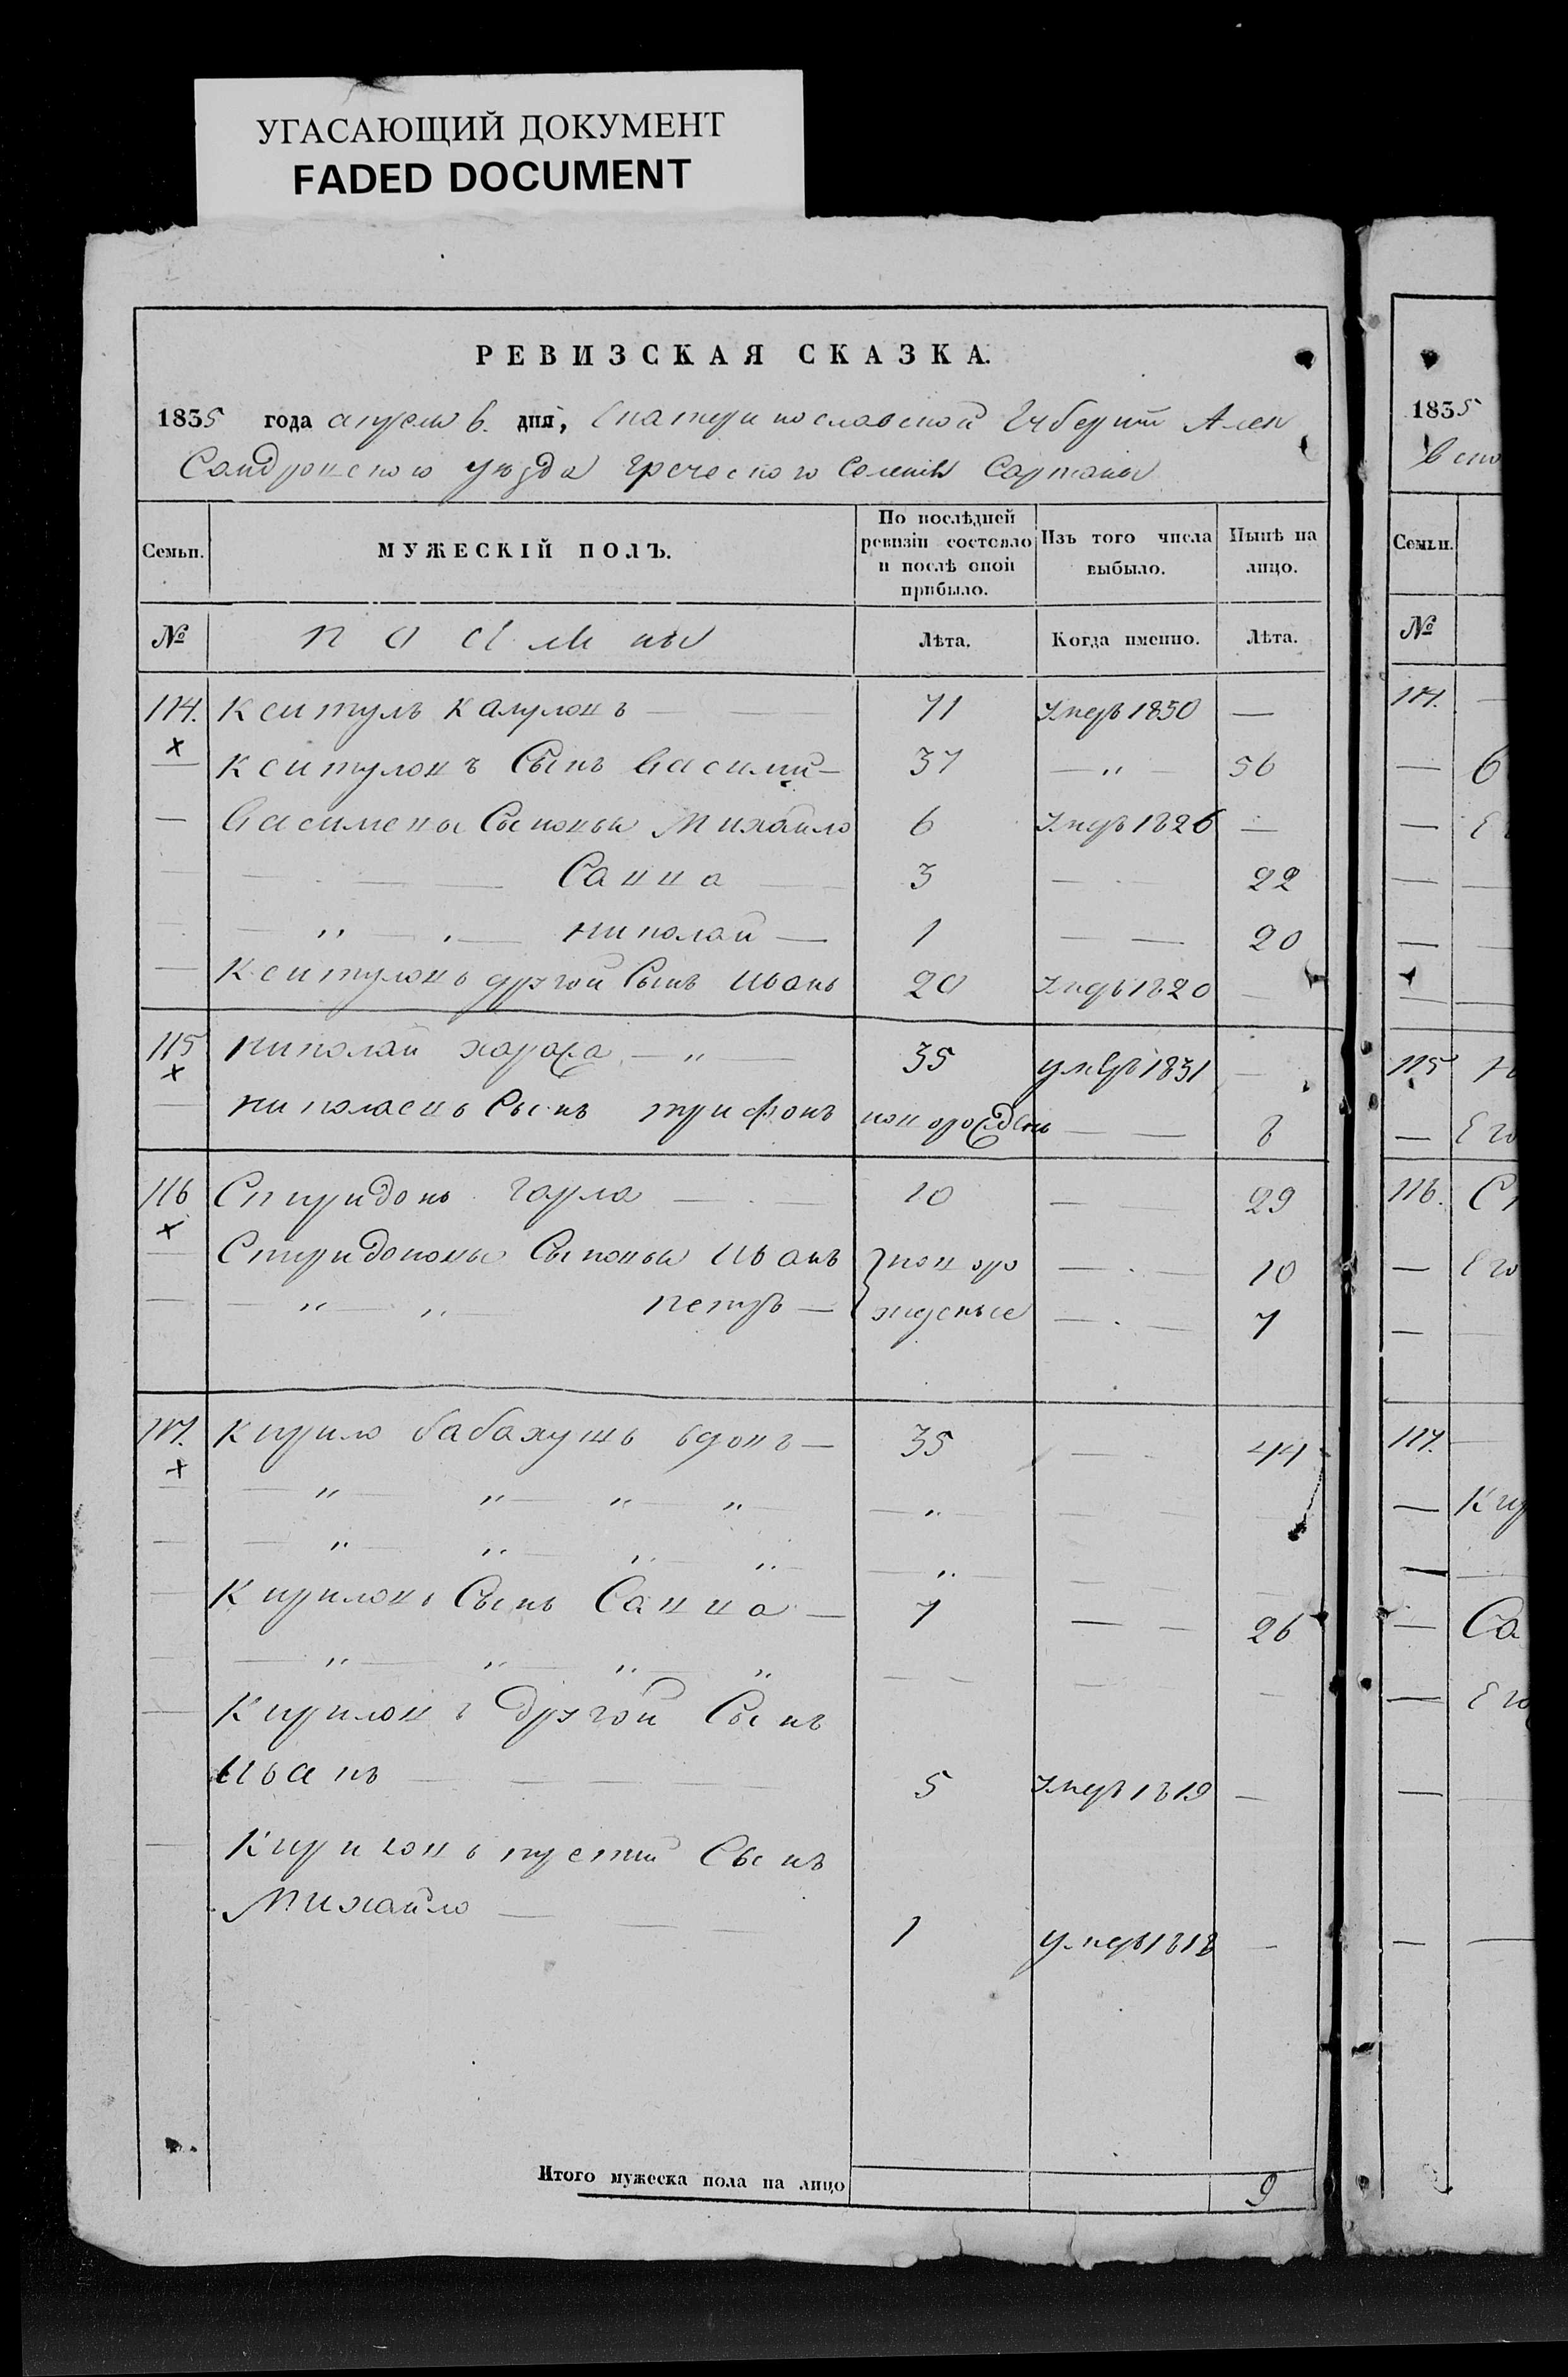 УГАСАЮЩИЙ ДОКУМЕНТ
FADED DOCUMENT
РЕВИЗСКАЯ СКАЗКА.
1835 года апреля 6. дня, Екатеринославской Губернии Алек
Сандровского уезда Греческого Селения Сартаны
Семьи. МУЖЕСКІЙ ПОЛЪ. По послѣдней ревизіи состояло и послѣ оной прибыло. Изъ того числа выбыло. Нынѣ на лицо.
№ Лѣта. Когда именно. Лѣта.
114. 71 умеръ 1830 —
Сынъ Василий — 37 — " — 56
Василевы Сыновья Михайло 6 умеръ 1826 —
— Савва — 3 — 22
— " — " — николай — 1 — — 20
другой Сынъ иванъ 20 умеръ 1820 —
115 николай хараджа — " — 35 умеръ 1831 —
николаевъ Сынъ трифонъ новорожденъ — — 8
116 Спиридонъ — 10 — 29
Спиридоновы Сыновья иванъ } новоро — 10
— " — " — петръ — } жденые — 7
117. Кирило вдовъ — 35 — 44
— " — " — " — " — — " —
— " — " — " — " — — " —
Кириловъ Сынъ Савва — 7 — — 26
— " — " — " — "
Кириловъ другой Сынъ
иванъ — 5 умеръ 1819 —
Кириловъ третий Сынъ
Михайло — 1 умеръ 1818 —
Итого мужеска пола на лицо 9
1835
Семьи.
№
114.
115
Его
116.
Его
117.